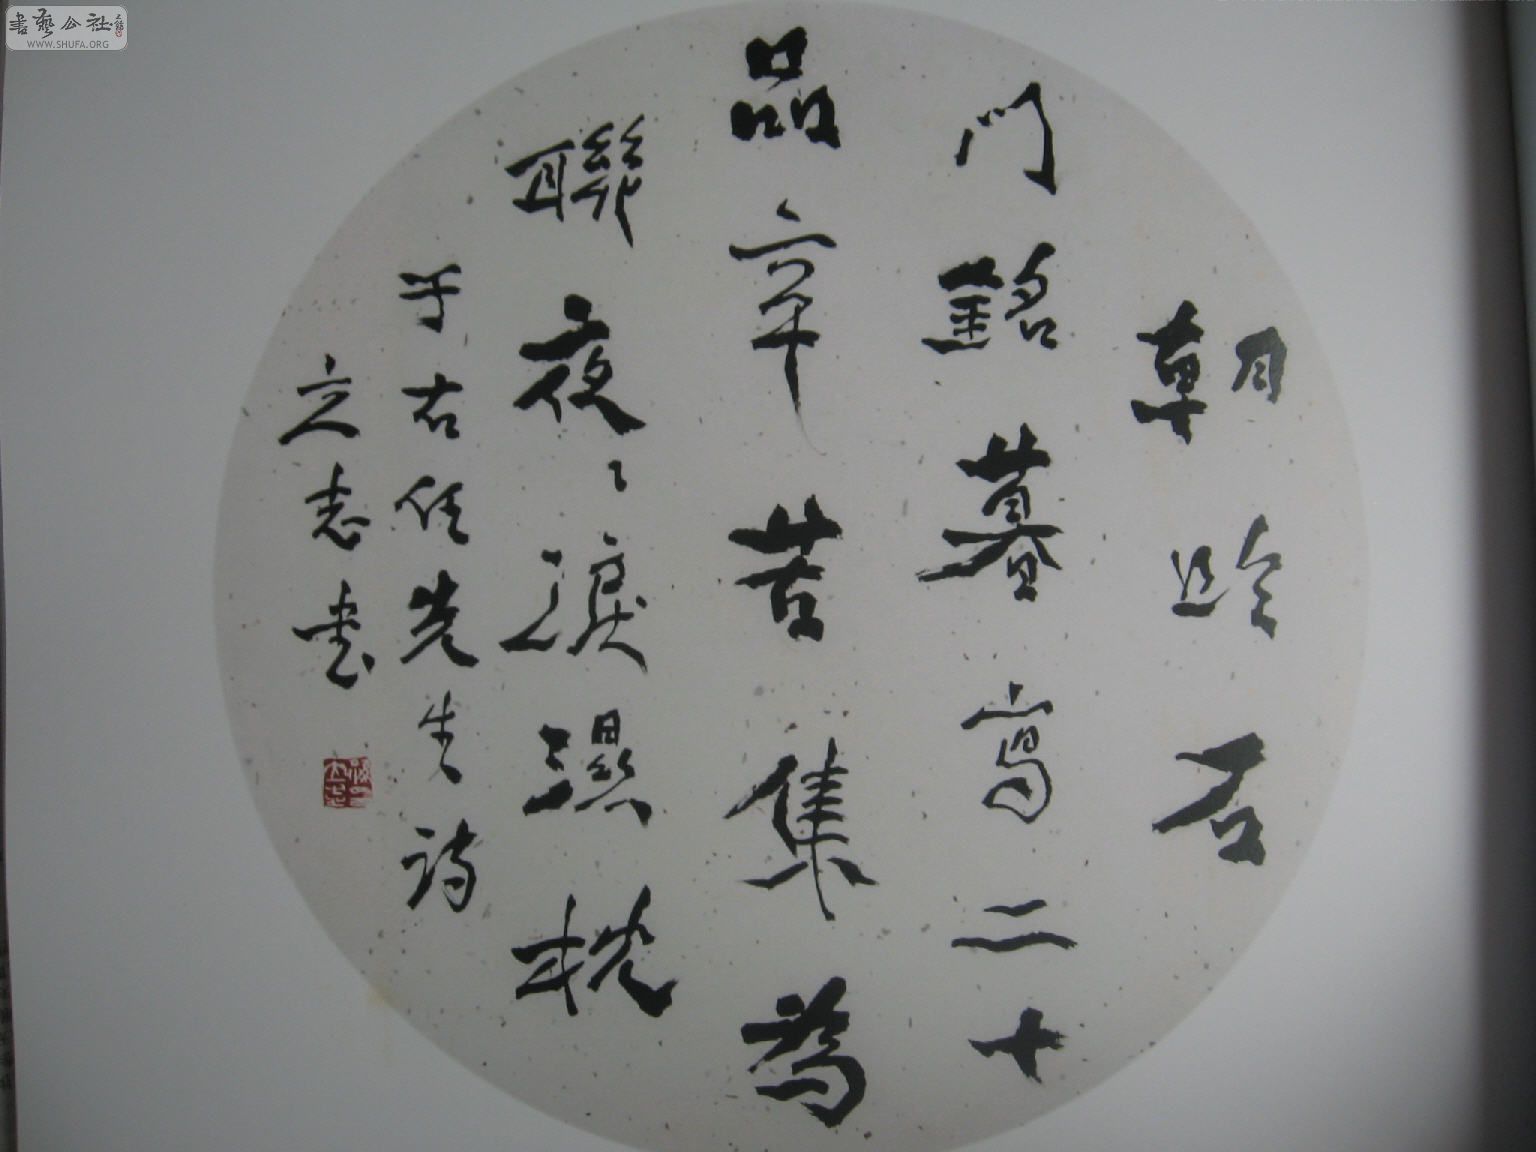 朝臨石
門銘暮寫二十
品辛苦集為
聯夜〻淚濕枕
于右任先生詩
立志書
書藝公社
WWW.SHUFA.ORG